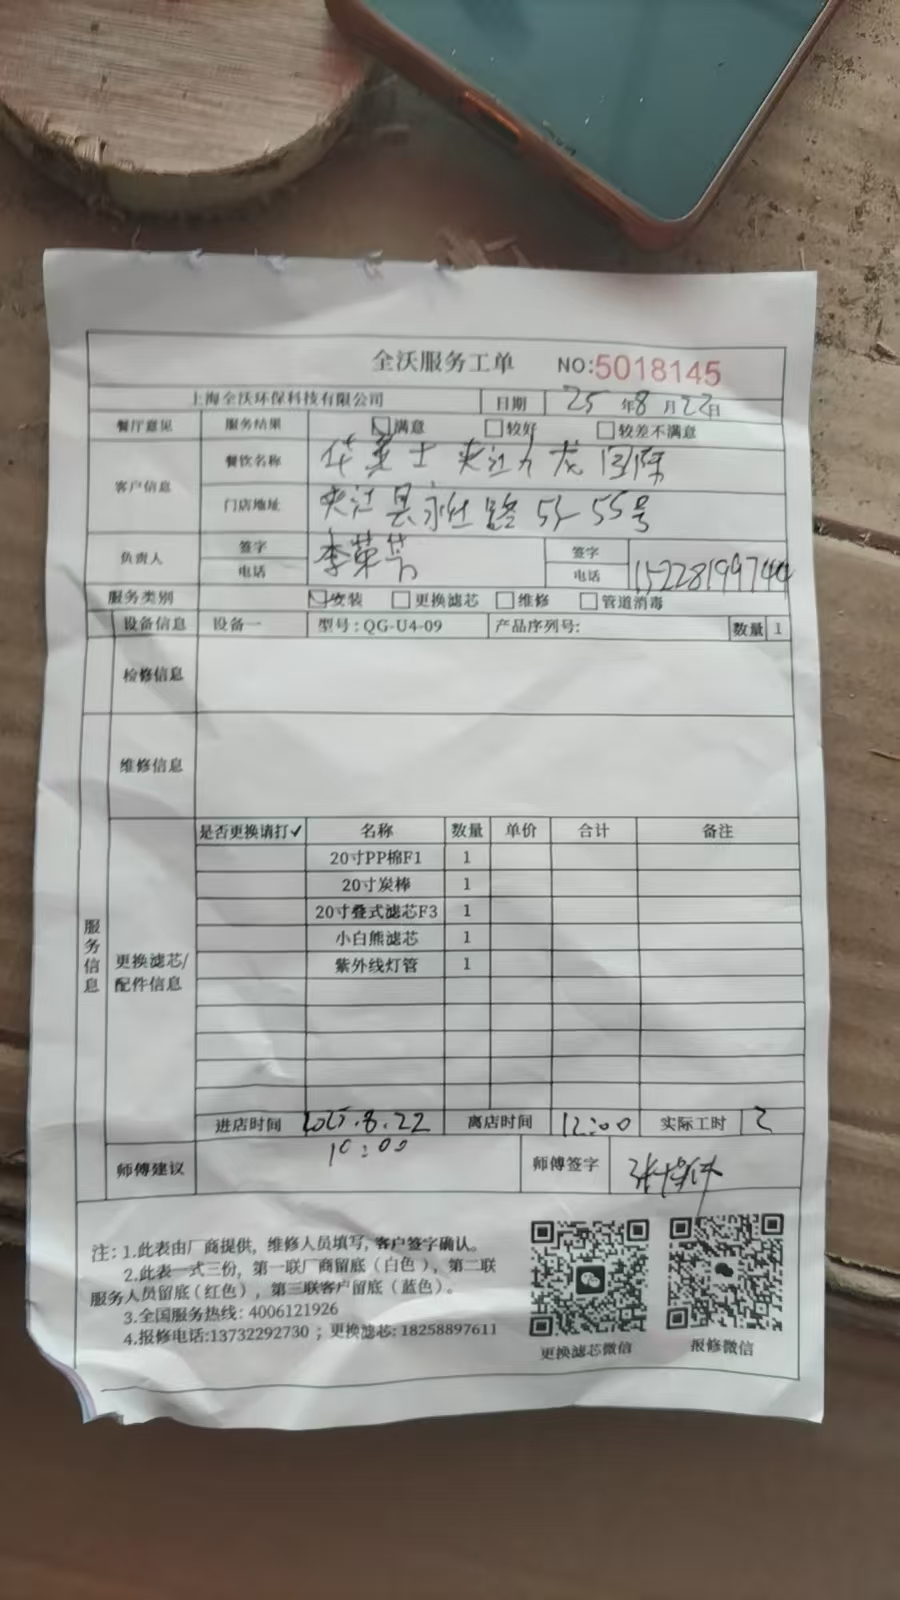 全沃服务工单 NO:5018145
上海全沃环保科技有限公司 日期 25年8月22日
餐厅意见 服务结果 满意 较好 较差不满意
客户信息 餐饮名称 华莱士夹江九龙国际
门店地址 夹江县 路53-55号
负责人 签字 李荣 签字
电话 电话 15228199744
服务类别 安装 更换滤芯 维修 管道消毒
服务信息
设备信息 设备一 型号:QG-U4-09 产品序列号: 数量 1
检修信息
维修信息
更换滤芯/配件信息
是否更换请打✓ 名称 数量 单价 合计 备注
20寸PP棉F1 1
20寸炭棒 1
20寸叠式滤芯F3 1
小白熊滤芯 1
紫外线灯管 1
进店时间 2025.8.22 离店时间 12:00 实际工时 2
10:00
师傅建议 师傅签字 张
注:1.此表由厂商提供,维修人员填写,客户签字确认。
2.此表一式三份,第一联厂商留底(白色),第二联
服务人员留底(红色),第三联客户留底(蓝色)。
3.全国服务热线:4006121926
4.报修电话:13732292730;更换滤芯:18258897611
更换滤芯微信 报修微信